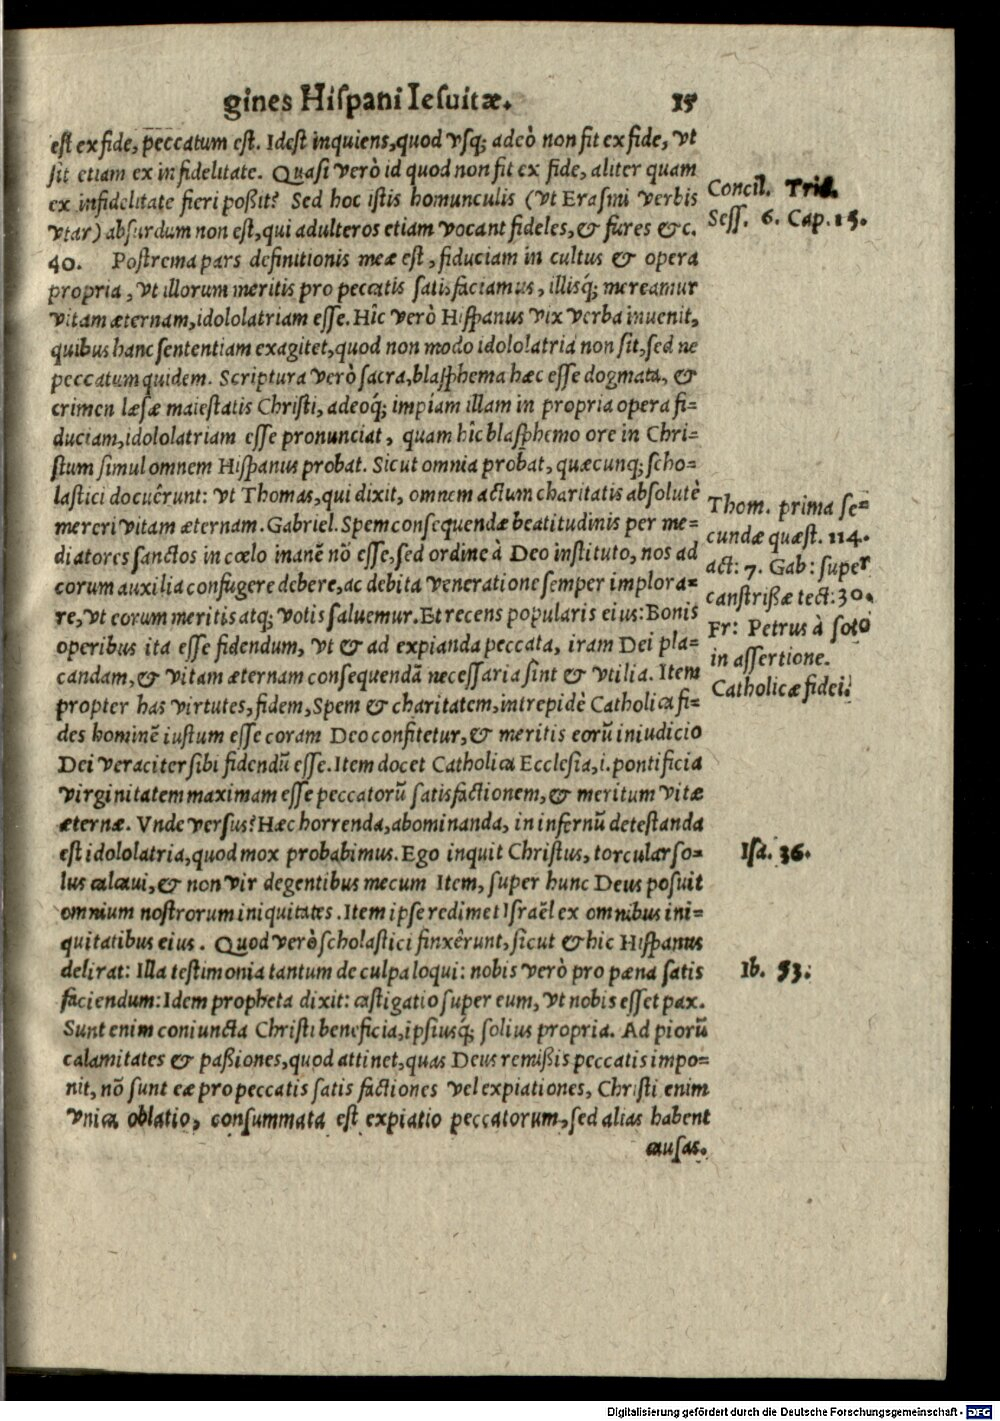 gines Hiſpani Ieſuitæ. 15
eſt ex fide, peccatum eſt. Ideſt inquiens, quod vſq; adeò non fit ex fide, vt
ſit etiam ex infidelitate. Quaſi verò id quod non fit ex fide, aliter quam
ex infidelitate fieri poßit? Sed hoc iſtis homunculis (vt Eraſmi verbis
vtar) abſurdum non eſt, qui adulteros etiam vocant fideles, & fures &c.
40. Poſtrema pars definitionis meæ eſt, fiduciam in cultus & opera
propria, vt illorum meritis pro peccatis ſatisfaciamus, illisq́; mereamur
vitam æternam, idololatriam eſſe. Hîc verò Hiſpanus vix verba inuenit,
quibus hanc ſententiam exagitet, quod non modo idololatria non ſit, ſed ne
peccatum quidem. Scriptura verò ſacra, blaſphema hæc eſſe dogmata, &
crimen læſæ maieſtatis Chriſti, adeoq́; impiam illam in propria opera fi=
duciam, idololatriam eſſe pronunciat, quam hîc blaſphemo ore in Chri=
ſtum ſimul omnem Hiſpanus probat. Sicut omnia probat, quæcunq; ſcho=
laſtici docuêrunt: vt Thomas, qui dixit, omnem actum charitatis abſolutè
mereri vitam æternam. Gabriel. Spem conſequendæ beatitudinis per me=
diatores ſanctos in cœlo inanẽ nõ eſſe, ſed ordine à Deo inſtituto, nos ad
eorum auxilia confugere debere, ac debita veneratione ſemper implora=
re, vt eorum meritis atq; votis ſaluemur. Et recens popularis eius: Bonis
operibus ita eſſe fidendum, vt & ad expianda peccata, iram Dei pla=
candam, & vitam æternam conſequendã neceſſaria ſint & vtilia. Item
propter has virtutes, fidem, Spem & charitatem, intrepidè Catholica fi=
des hominẽ iuſtum eſſe coram Deo confitetur, & meritis eorũ in iudicio
Dei veraciter ſibi fidendũ eſſe. Item docet Catholica Eccleſia, i. pontificia
virginitatem maximam eſſe peccatorũ ſatisfactionem, & meritum vitæ
æternæ. Vnde verſus? Hæc horrenda, abominanda, in infernũ deteſtanda
eſt idololatria, quod mox probabimus. Ego inquit Chriſtus, torcular ſo=
lus calcaui, & non vir de gentibus mecum Item, ſuper hunc Deus poſuit
omnium noſtrorum iniquitates. Item ipſe redimet Iſraël ex omnibus ini=
quitatibus eius. Quod verò ſcholaſtici finxêrunt, ſicut & hic Hiſpanus
delirat: Illa teſtimonia tantum de culpa loqui: nobis verò pro pœna ſatis
faciendum: Idem propheta dixit: caſtigatio ſuper eum, vt nobis eſſet pax.
Sunt enim coniuncta Chriſti beneficia, ipſiusq́; ſolius propria. Ad piorũ
calamitates & paßiones, quod attinet, quas Deus remißis peccatis impo=
nit, nõ ſunt eæ pro peccatis ſatis factiones vel expiationes, Chriſti enim
vnica oblatio, conſummata eſt expiatio peccatorum, ſed alias habent
cauſas.
Concil. Trid.
Seſſ. 6. Cap. 15.
Thom. prima ſe=
cundæ quæſt. 114.
act: 7. Gab: ſuper
canſtrißæ tect: 30.
Fr: Petrus à ſoto
in aſſertione.
Catholicæ fidei.
Iſa. 36.
Ib. 53.
Digitalisierung gefördert durch die Deutsche Forschungsgemeinschaft - DFG